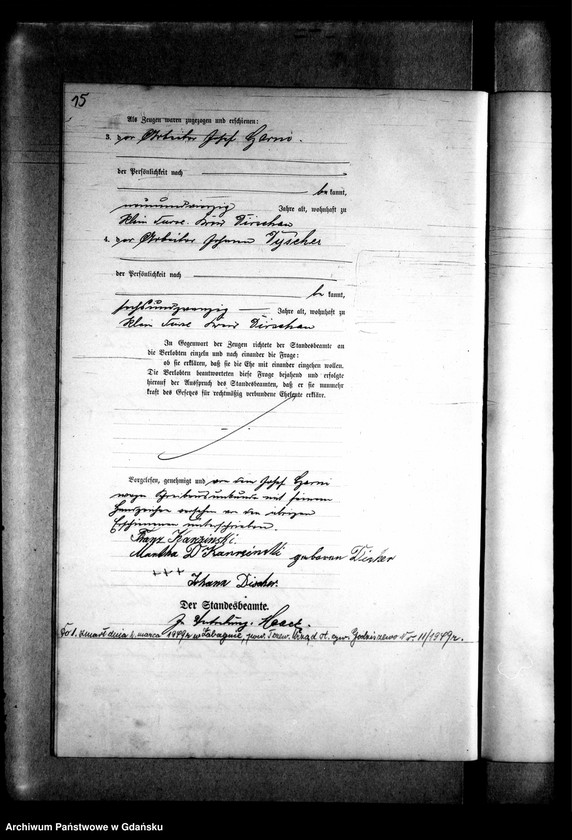 15
Als Zeugen waren zugezogen und erschienen:
3. der Arbeiter Josef
der Persönlichkeit nach
be kannt,
neunundzwanzig Jahre alt, wohnhaft zu
Klein Turse Kreis Dirschau
4. der Arbeiter Johann Tyscher
der Persönlichkeit nach
be kannt,
sechsundzwanzig Jahre alt, wohnhaft zu
Klein Turse Kreis Dirschau
In Gegenwart der Zeugen richtete der Standesbeamte an
die Verlobten einzeln und nach einander die Frage:
ob sie erklären, daß sie die Ehe mit einander eingehen wollen.
Die Verlobten beantworteten diese Frage bejahend und erfolgte
hierauf der Ausspruch des Standesbeamten, daß er sie nunmehr
kraft des Gesetzes für rechtmäßig verbundene Eheleute erkläre.
Vorgelesen, genehmigt und von dem Josef
wegen Schreibensunkunde mit seinem
Handzeichen versehen von den übrigen
Erschienenen unterschrieben.
Franz
Martha geboren
+++
Johann Discher.
Der Standesbeamte.
zmarł dnia marca 1949 r w pow. Tczew. Urząd st. cyw. Nr 11/1949 r.
Archiwum Państwowe w Gdańsku